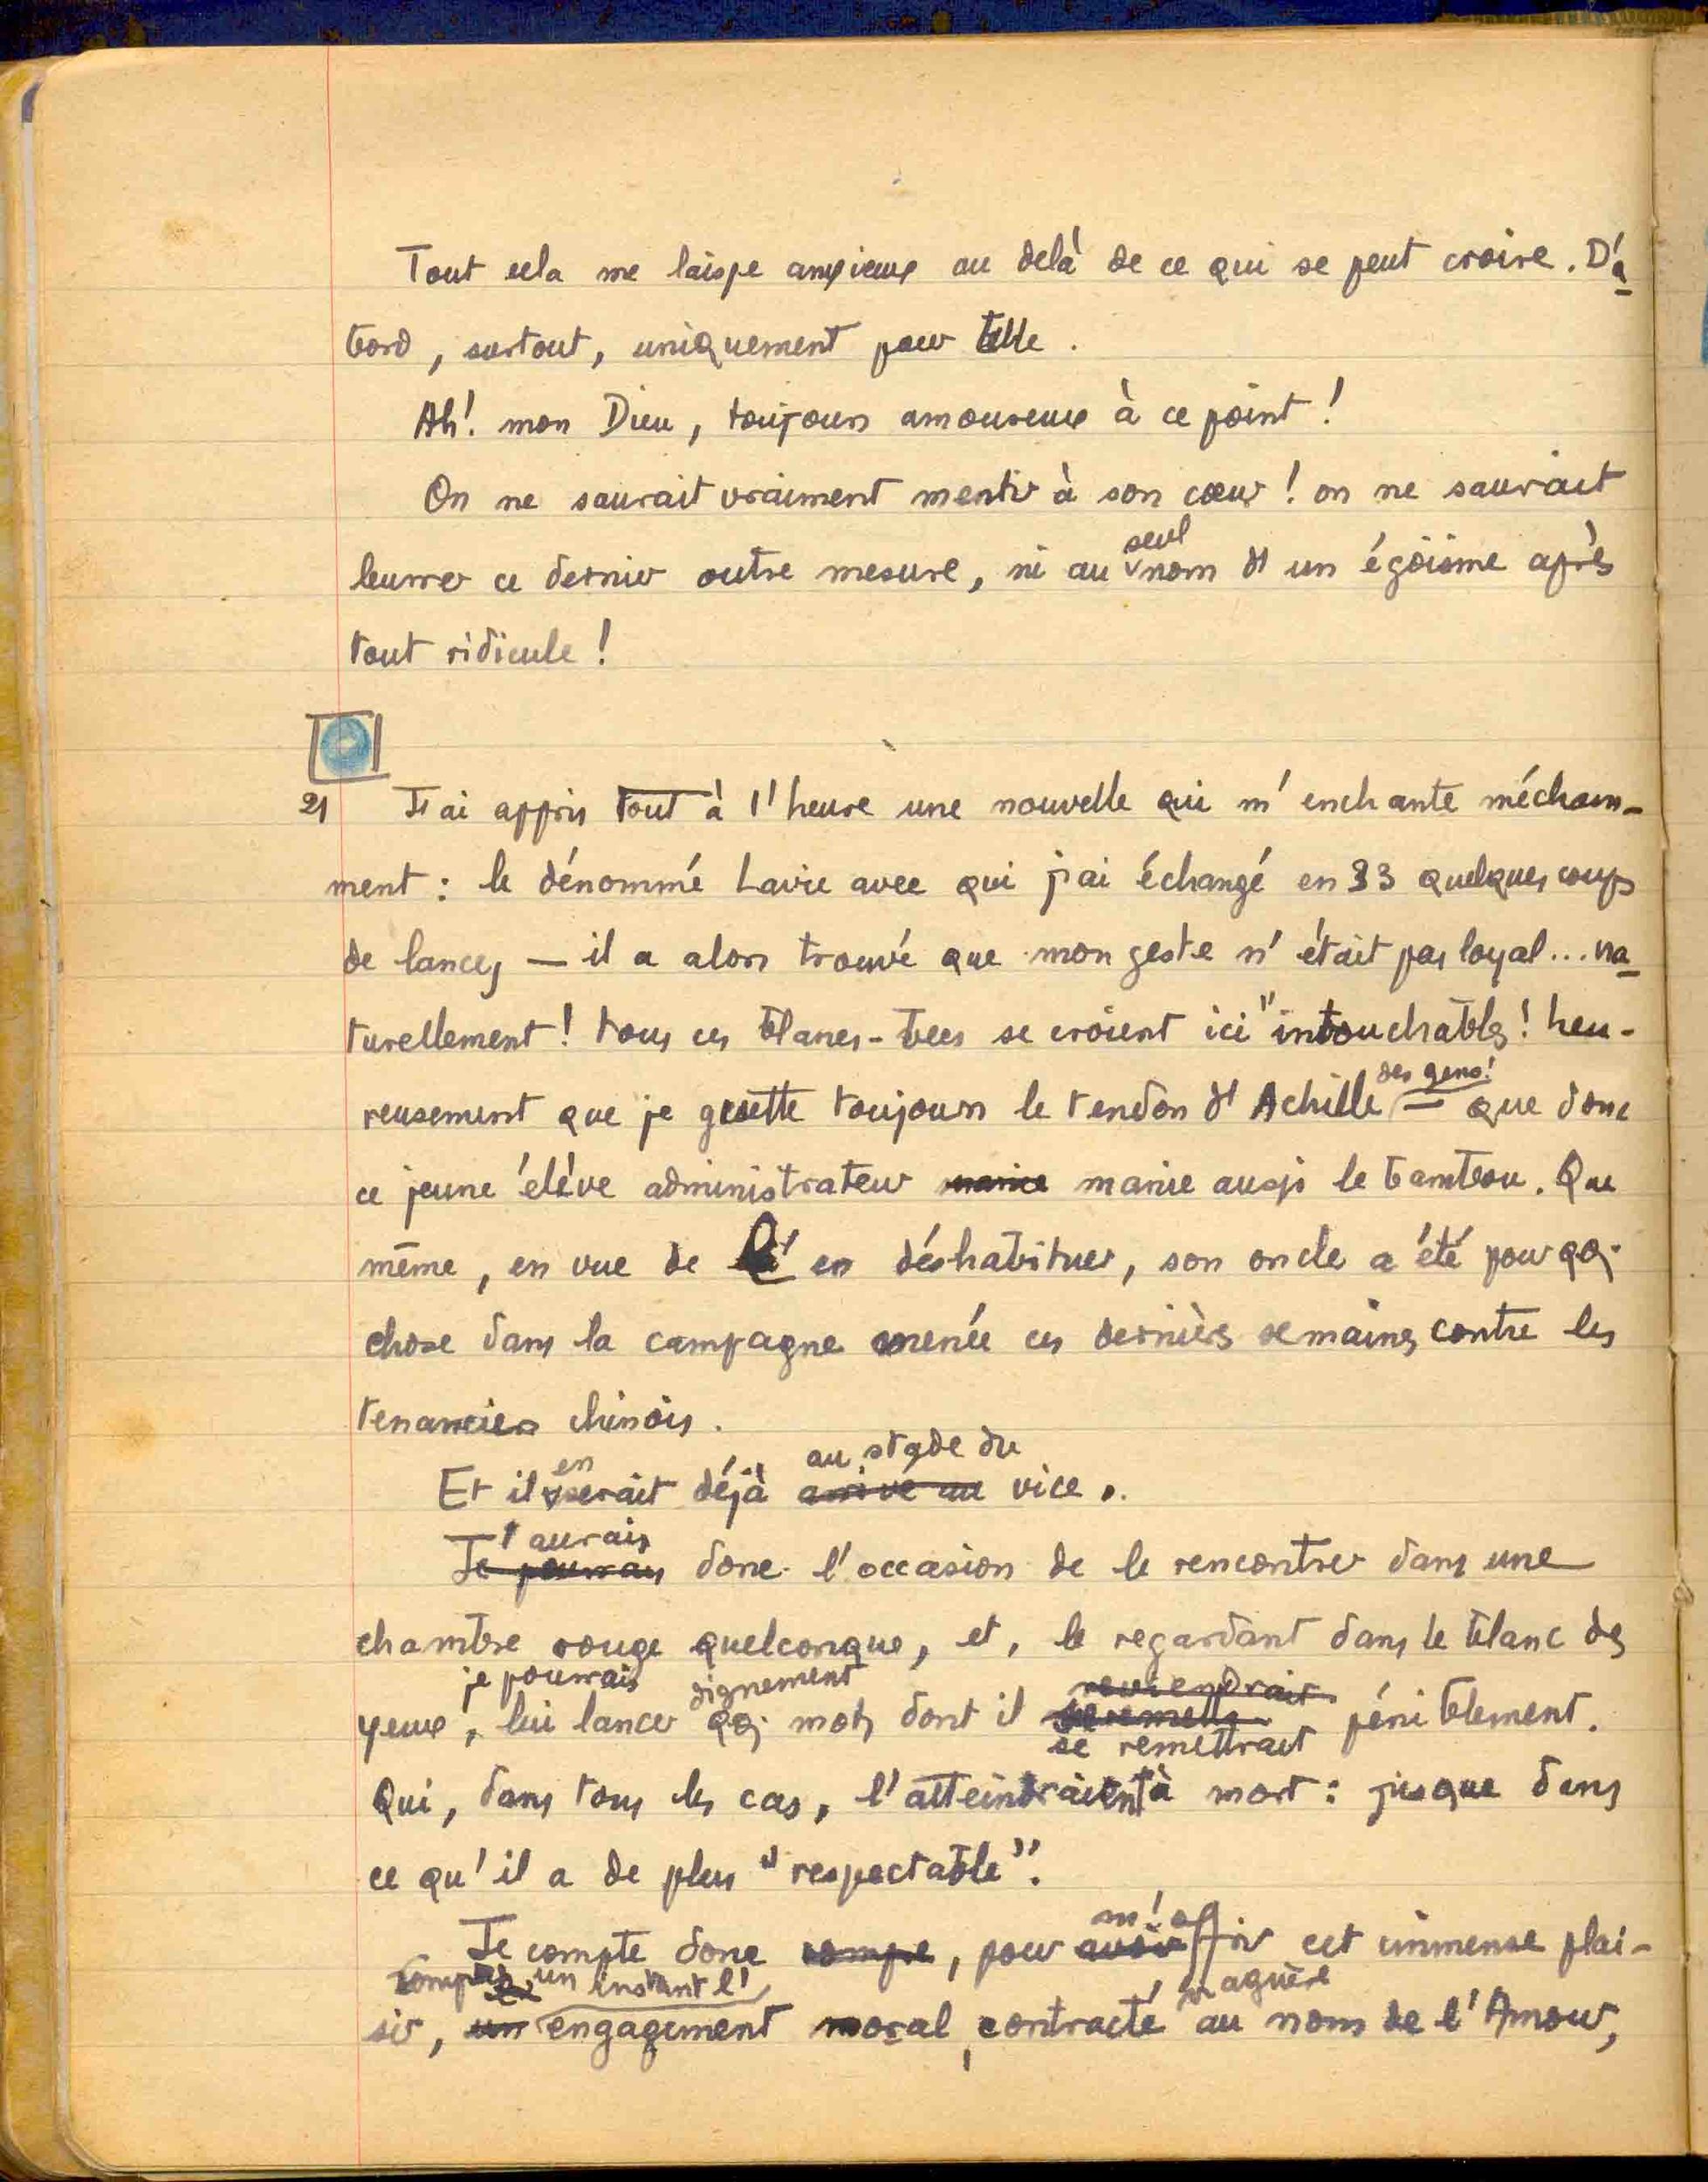 Tout cela me laisse anxieux au delà de ce qui se peut croire. D'a
bord, surtout, uniquement pour Elle.
Ah! mon Dieu, toujours amoureux à ce point!
On ne saurait vraiment mentir à son cœur! on ne saurait
seul
leurrer ce dernier outre mesure, ni au nom d'un égoïsme après
tout ridicule!
21 J'ai appris tout à l'heure une nouvelle qui m'enchante mécham-
ment: le dénommé Lavie avec qui j'ai échangé en 33 quelques coups
de lances — il a alors trouvé que mon geste n'était pas loyal... na
turellement! tous ces blancs-becs se croient ici "intouchables! heu-
des gens!
reusement que je guette toujours le tendon d'Achille — que donc
ce jeune élève administrateur manie manie aussi le bambou. Que
même, en vue de l'en déshabituer, son oncle a été pour qq.
chose dans la campagne menée ces dernières semaines contre les
tenanciers chinois.
en au stade du
Et il serait déjà arrivé au vice.
J'aurais
Je pourrais donc l'occasion de le rencontrer dans une
chambre rouge quelconque, et, le regardant dans le blanc des
je pourrais dignement reviendrait
yeux, lui lancer qq. mots dont il se remettra péniblement.
se remettrait
Qui, dans tous les cas, l'atteindraient à mort: jusque dans
ce qu'il a de plus "respectable".
m'offrir
Je compte donc rompre, pour avoir cet immense plai-
rompre un instant l' naguère
sir, un engagement moral contracté au nom de l'Amour,